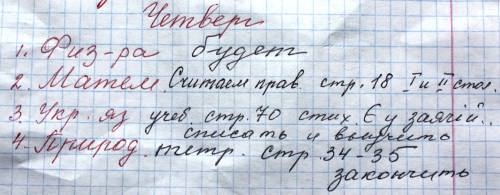 Четверг
1. Физ-ра будет
2. Матем. Считаем прав. стр. 18 I и II стол.
3. Укр. яз учеб. стр. 70 стих. Є у заячій..
списать и выучить
4. Природ. тетр. стр. 34-35
закончить